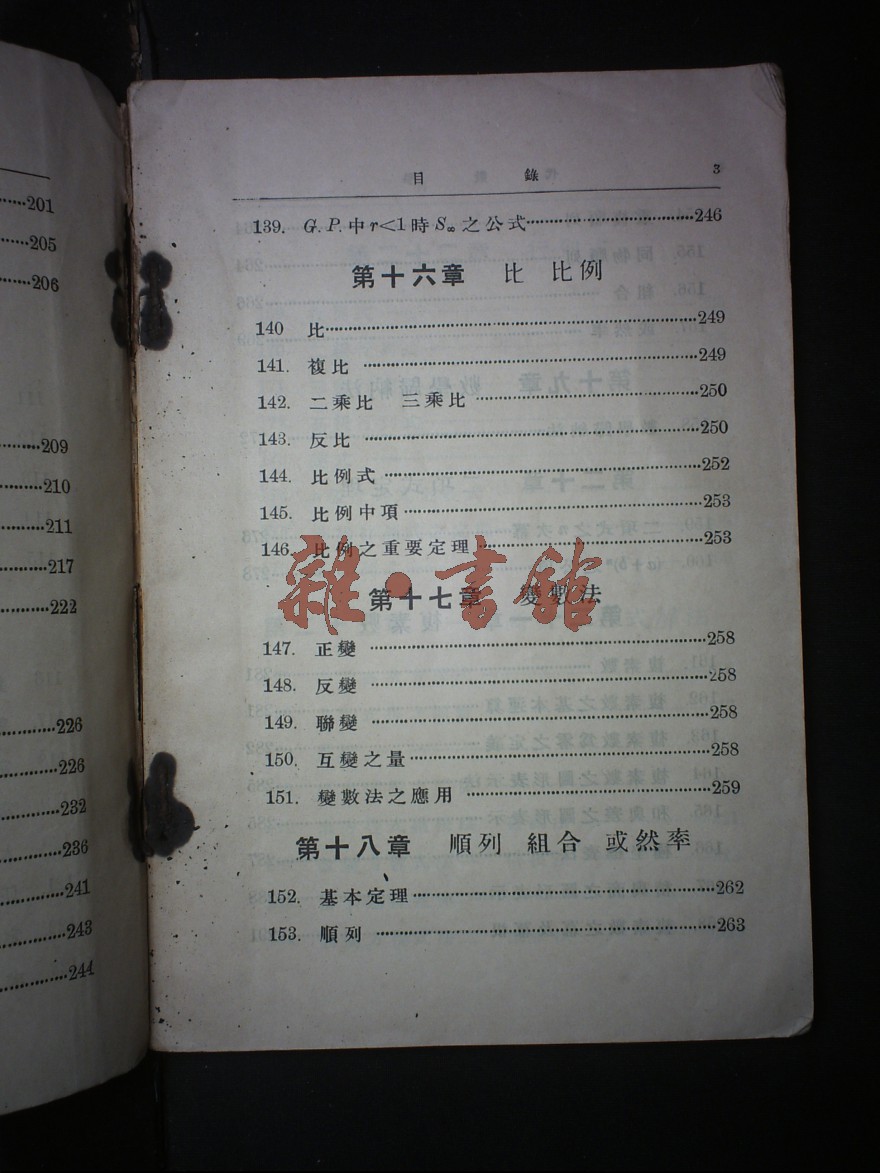 201
205
206
209
210
211
217
222
226
226
232
236
241
243
244
目錄 3
139. G.P.中r<1時S∞之公式……246
第十六章 比 比例
140 比……249
141. 複比……249
142. 二乘比 三乘比……250
143. 反比……250
144. 比例式……252
145. 比例中項……253
146. 比例之重要定理……253
雜·書館
第十七章 變數法
147. 正變……258
148. 反變……258
149. 聯變……258
150. 互變之量……258
151. 變數法之應用……259
第十八章 順列 組合 或然率
152. 基本定理……262
153. 順列……263